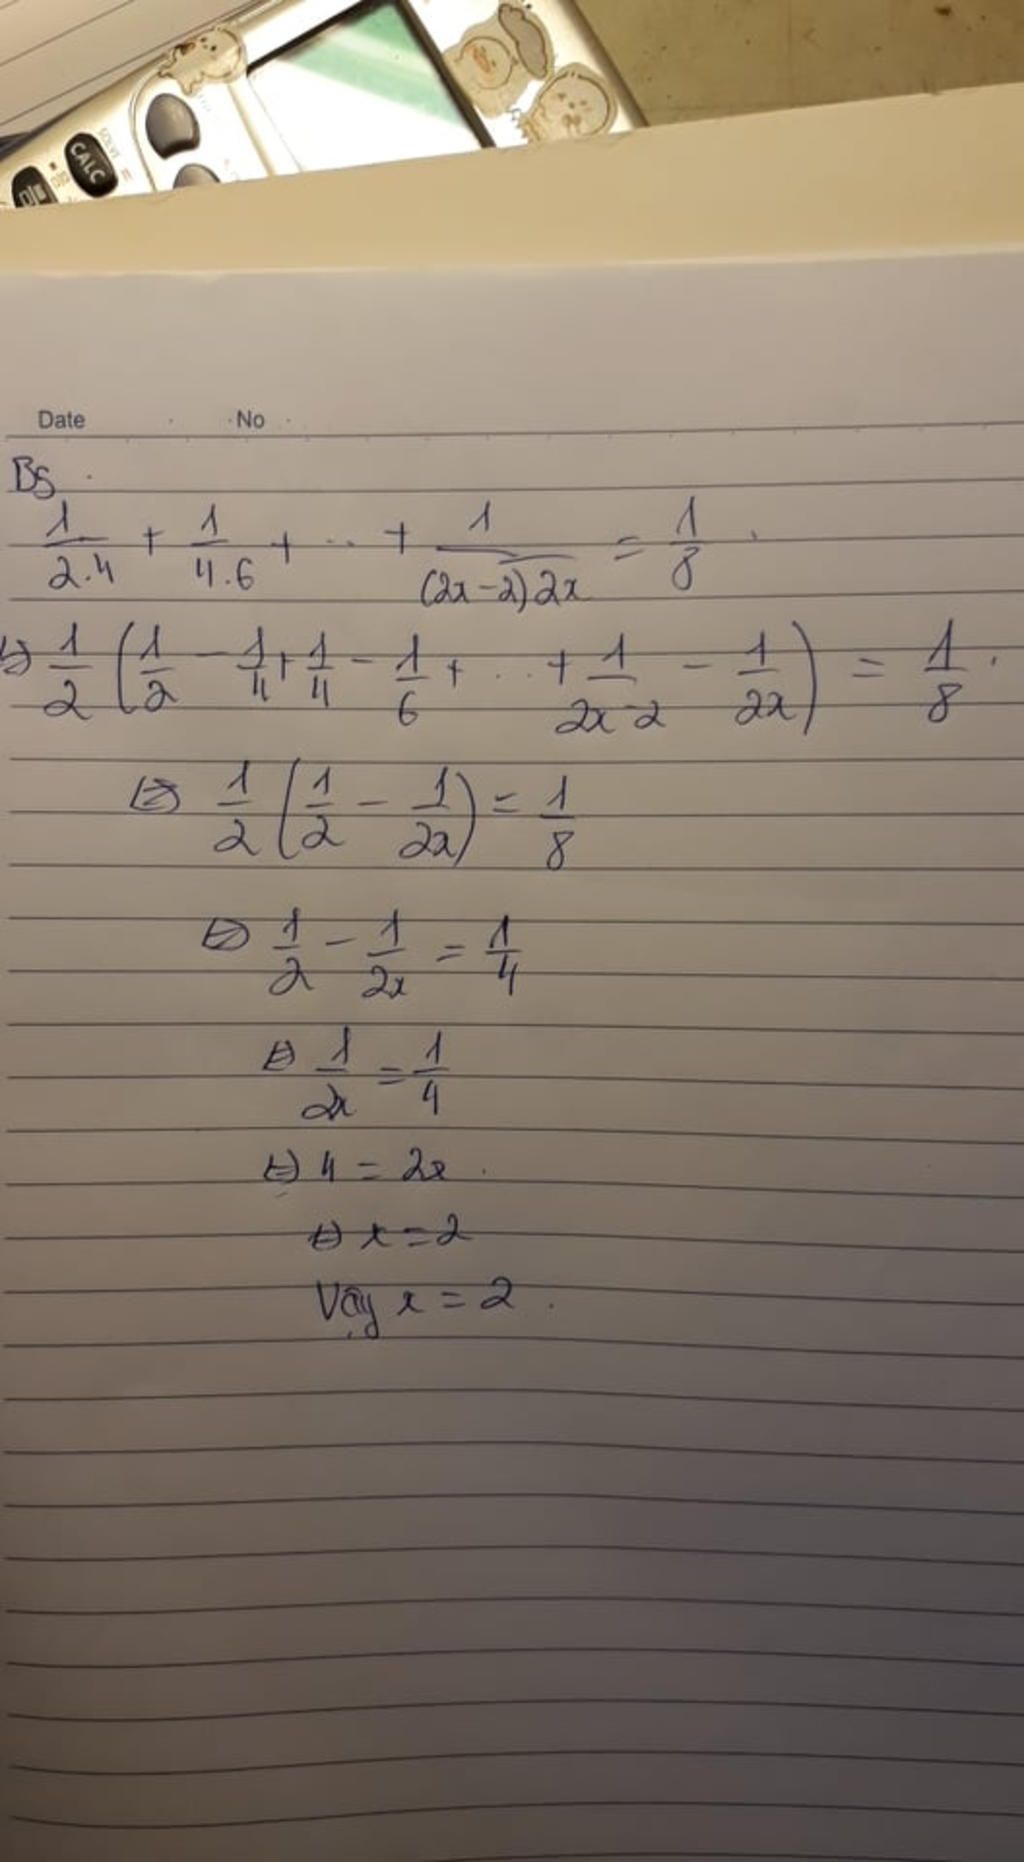 SOLVE =
CALC
Date No
B5
1/2.4 + 1/4.6 + ... + 1/(2x-2)2x = 1/8
⇔ 1/2 (1/2 - 1/4 + 1/4 - 1/6 + ... + 1/2x-2 - 1/2x) = 1/8
⇔ 1/2 (1/2 - 1/2x) = 1/8
⇔ 1/2 - 1/2x = 1/4
⇔ 1/2x = 1/4
⇔ 4 = 2x
⇔ x = 2
Vậy x = 2